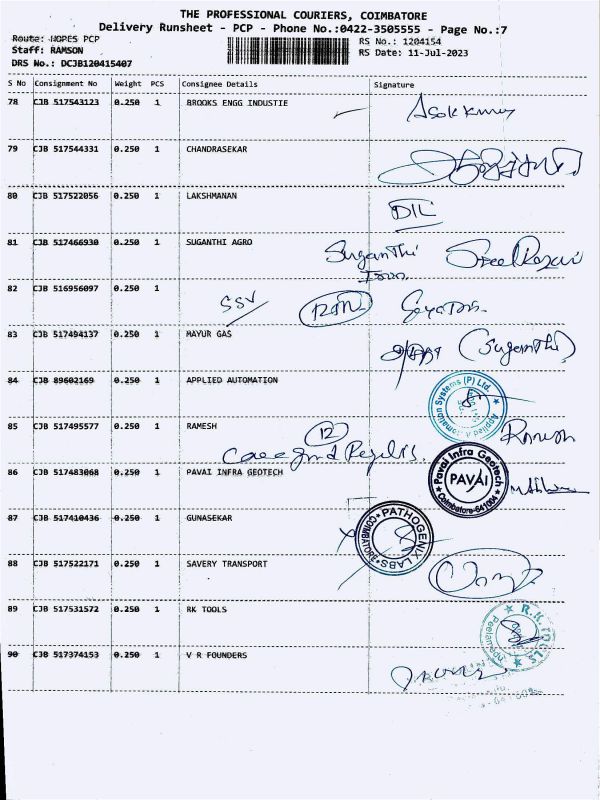 THE PROFESSIONAL COURIERS, COIMBATORE
Delivery Runsheet - PCP - Phone No.:0422-3505555 - Page No.:7
Route: HOPES PCP
RS No.: 1204154
Staff: RAMSON
RS Date: 11-Jul-2023
DRS No.: DCJB120415407
S No Consignment No Weight PCS Consignee Details Signature
78 CJB 517543123 0.250 1 BROOKS ENGG INDUSTIE
79 CJB 517544331 0.250 1 CHANDRASEKAR
80 CJB 517522056 0.250 1 LAKSHMANAN
DIL
81 CJB 517466930 0.250 1 SUGANTHI AGRO Suganthi
82 CJB 516956097 0.250 1
SSV
83 CJB 517494137 0.250 1 MAYUR GAS (Suganthi)
84 CJB 89602169 0.250 1 APPLIED AUTOMATION
Applied Automation Systems (P) Ltd.
85 CJB 517495577 0.250 1 RAMESH 12 Ramesh
86 CJB 517483068 0.250 1 PAVAI INFRA GEOTECH
Pavai Infra Geotech
PAVAI
Coimbatore-641004
87 CJB 517410436 0.250 1 GUNASEKAR
PATHOGENIX LABS
COIMBATORE
88 CJB 517522171 0.250 1 SAVERY TRANSPORT
89 CJB 517531572 0.250 1 RK TOOLS
90 CJB 517374153 0.250 1 V R FOUNDERS